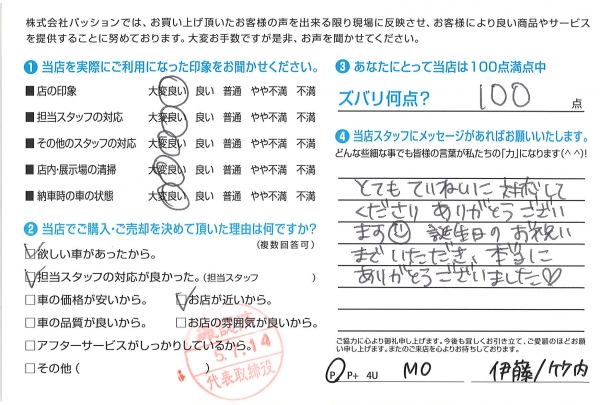 株式会社パッションでは、お買い上げ頂いたお客様の声を出来る限り現場に反映させ、お客様により良い商品やサービス
を提供することに努めております。大変お手数ですが是非、お声を聞かせてください。
❶ 当店を実際にご利用になった印象をお聞かせください。
■店の印象 大変良い 良い 普通 やや不満 不満
■担当スタッフの対応 大変良い 良い 普通 やや不満 不満
■その他のスタッフの対応 大変良い 良い 普通 やや不満 不満
■店内・展示場の清掃 大変良い 良い 普通 やや不満 不満
■納車時の車の状態 大変良い 良い 普通 やや不満 不満
❷ 当店でご購入・ご売却を決めて頂いた理由は何ですか?
(複数回答可)
☑欲しい車があったから。
☑担当スタッフの対応が良かった。(担当スタッフ )
□車の価格が安いから。 ☑お店が近いから。
□車の品質が良いから。 □お店の雰囲気が良いから。
□アフターサービスがしっかりしているから。
□その他( )
5.1.14
代表取締役
❸ あなたにとって当店は100点満点中
ズバリ何点? 100 点
❹ 当店スタッフにメッセージがあればお願いいたします。
どんな些細な事でも皆様の言葉が私たちの「力」になります(^ ^)!
とても ていねいに 対応して
くださり ありがとうござい
ます 誕生日の お祝い
まで いただき、本当に
ありがとうございました♡
ご協力に心より御礼申し上げます。今後も宜しくお引き立て、ご愛顧のほどお願
い申し上げます。またのご来店を心よりお待ちしております。
P P+ 4U MO 伊藤/竹内